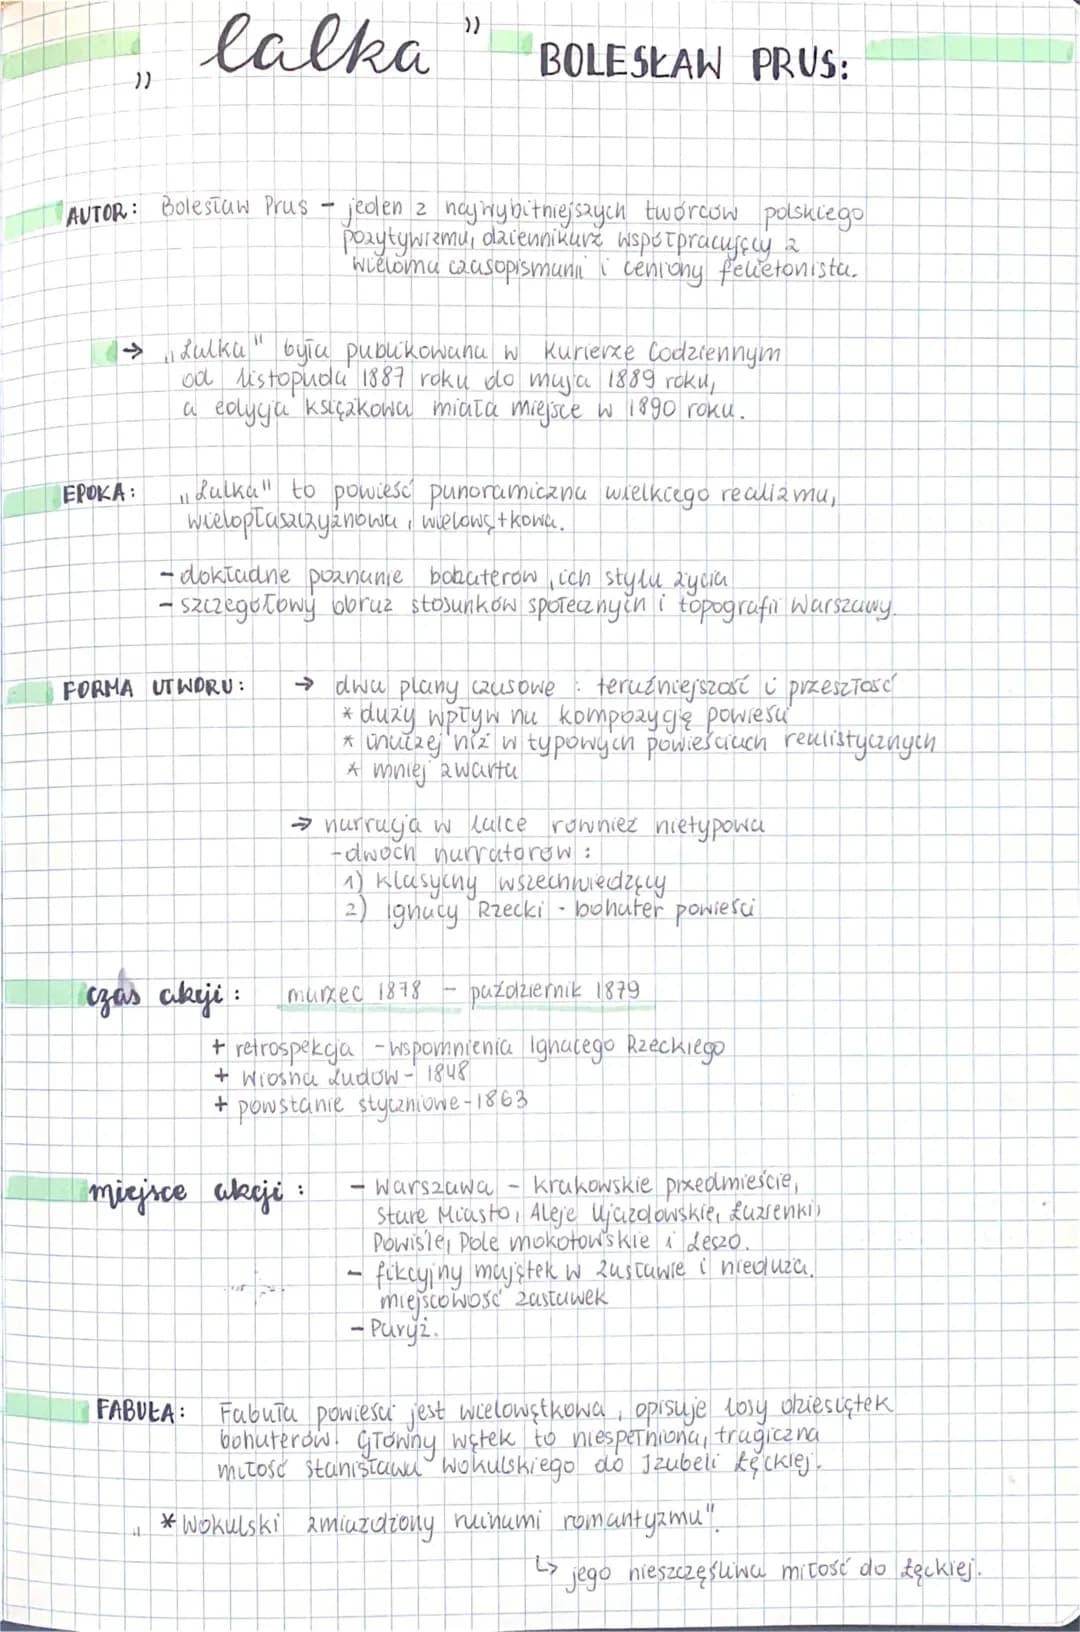 „Lalka" BOLESŁAW PRUS:
AUTOR: Bolesław Prus - jeden z najwybitniejszych twórców polskiego
pozytywizmu, dziennikarz współpracujący z
wieloma czasopismami i ceniony felietonista.
→ „Lalka" była publikowana w Kurierze Codziennym
od listopada 1887 roku do maja 1889 roku,
a edycja książkowa miała miejsce w 1890 roku.
EPOKA: „Lalka" to powieść panoramiczna wielkiego realizmu,
wielopłaszczyznowa, wielowątkowa.
- dokładne poznanie bohaterów, ich stylu życia
- szczegółowy obraz stosunków społecznych i topografii Warszawy.
FORMA UTWORU: → dwa plany czasowe : teraźniejszość i przeszłość
* duży wpływ na kompozycję powieści
* inaczej niż w typowych powieściach realistycznych
* mniej zwarta
→ narracja w lalce również nietypowa
- dwóch narratorów :
1) klasyczny wszechwiedzący
2) Ignacy Rzecki - bohater powieści
czas akcji : marzec 1878 - październik 1879
+ retrospekcja - wspomnienia Ignacego Rzeckiego
+ Wiosna Ludów - 1848
+ powstanie styczniowe - 1863
miejsce akcji : - Warszawa - Krakowskie przedmieście,
Stare Miasto, Aleje Ujazdowskie, Łazienki,
Powiśle, Pole mokotowskie i Leszo.
- fikcyjny majątek w Zasławie i nieduża,
miejscowość Zasławek
- Paryż.
FABUŁA: Fabuła powieści jest wielowątkowa, opisuje losy dziesiątek
bohaterów. Główny wątek to niespełniona, tragiczna
miłość Stanisława Wokulskiego do Izabeli Łęckiej.
„ * Wokulski zmiażdżony ruinami romantyzmu".
↳ jego nieszczęśliwa miłość do Łęckiej.